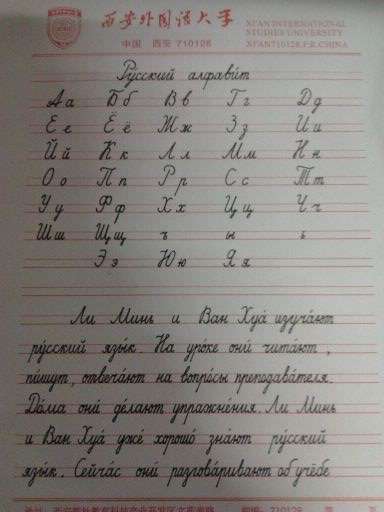 西安外国语大学 XI'AN INTERNATIONAL
STUDIES UNIVERSITY
中国 西安 710128 XI'AN 710128 P.R.CHINA
Ру́сский алфави́т
Аа Бб Вв Гг Дд
Ее Ёё Жж Зз Ии
Йй Кк Лл Мм Нн
Оо Пп Рр Сс Тт
Уу Фф Хх Цц Чч
Шш Щщ ъ ы ь
Ээ Юю Яя
Ли Минь и Ван Хуа́ изуча́ют
ру́сский язы́к. На уро́ке они́ чита́ют,
пи́шут, отвеча́ют на вопро́сы преподава́теля.
До́ма они́ де́лают упражне́ния. Ли Минь
и Ван Хуа́ уже́ хорошо́ зна́ют ру́сский
язы́к. Сейча́с они́ разгова́ривают об учёбе